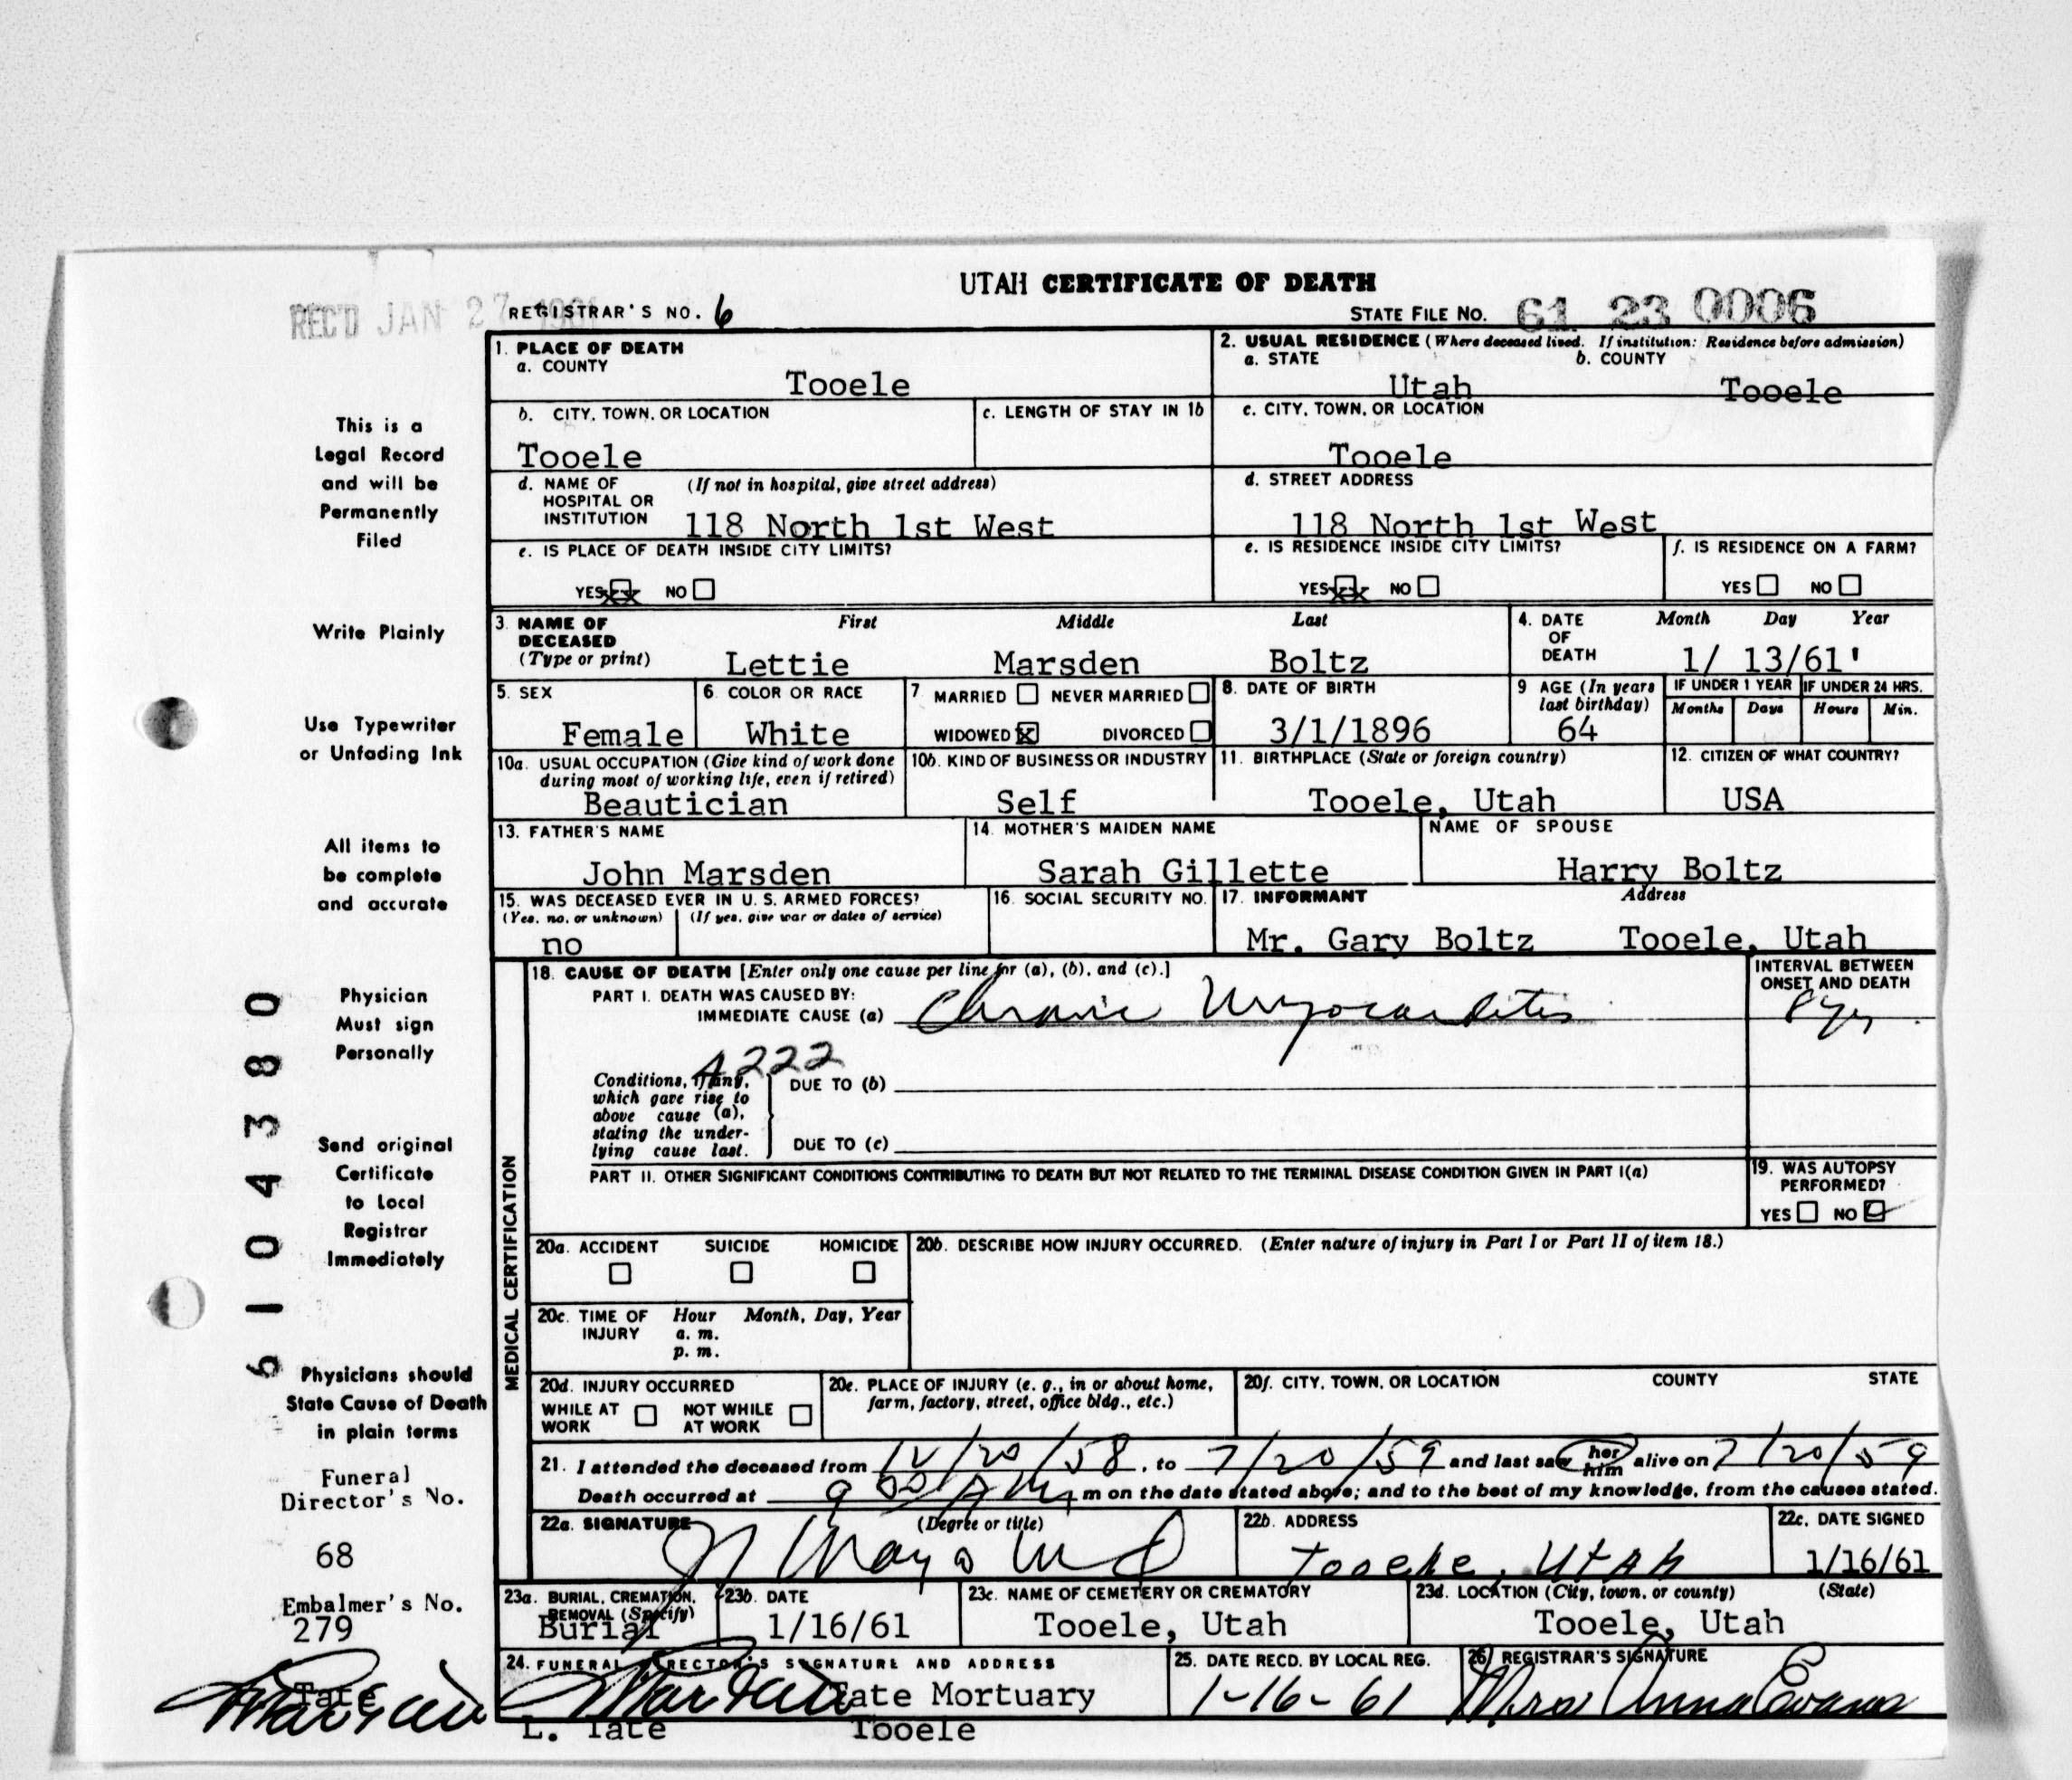 UTAH CERTIFICATE OF DEATH
REC'D JAN 27 1961
REGISTRAR'S NO. 6
STATE FILE NO. 61 23 0006
This is a
Legal Record
and will be
Permanently
Filed
Write Plainly
Use Typewriter
or Unfading Ink
All items to
be complete
and accurate
Physician
Must sign
Personally
Send original
Certificate
to Local
Registrar
Immediately
Physicians should
State Cause of Death
in plain terms
Funeral
Director's No.
68
Embalmer's No.
279
Tate
6104380
1. PLACE OF DEATH
a. COUNTY
Tooele
2. USUAL RESIDENCE (Where deceased lived. If institution: Residence before admission)
a. STATE b. COUNTY
Utah Tooele
b. CITY, TOWN, OR LOCATION
Tooele
c. LENGTH OF STAY IN 1b
c. CITY, TOWN, OR LOCATION
Tooele
d. NAME OF (If not in hospital, give street address)
HOSPITAL OR
INSTITUTION 118 North 1st West
d. STREET ADDRESS
118 North 1st West
e. IS PLACE OF DEATH INSIDE CITY LIMITS?
YES xx NO
e. IS RESIDENCE INSIDE CITY LIMITS?
YES xx NO
f. IS RESIDENCE ON A FARM?
YES NO
3. NAME OF First Middle Last
DECEASED
(Type or print) Lettie Marsden Boltz
4. DATE Month Day Year
OF
DEATH 1/ 13/61'
5. SEX
Female
6. COLOR OR RACE
White
7. MARRIED NEVER MARRIED
WIDOWED x DIVORCED
8. DATE OF BIRTH
3/1/1896
9 AGE (In years
last birthday)
64
IF UNDER 1 YEAR IF UNDER 24 HRS.
Months Days Hours Min.
10a. USUAL OCCUPATION (Give kind of work done
during most of working life, even if retired)
Beautician
10b. KIND OF BUSINESS OR INDUSTRY
Self
11. BIRTHPLACE (State or foreign country)
Tooele, Utah
12. CITIZEN OF WHAT COUNTRY?
USA
13. FATHER'S NAME
John Marsden
14. MOTHER'S MAIDEN NAME
Sarah Gillette
NAME OF SPOUSE
Harry Boltz
15. WAS DECEASED EVER IN U. S. ARMED FORCES?
(Yes, no, or unknown) (If yes, give war or dates of service)
no
16. SOCIAL SECURITY NO.
17. INFORMANT Address
Mr. Gary Boltz Tooele, Utah
MEDICAL CERTIFICATION
18. CAUSE OF DEATH [Enter only one cause per line for (a), (b), and (c).]
PART I. DEATH WAS CAUSED BY:
IMMEDIATE CAUSE (a) Chronic Myocarditis
INTERVAL BETWEEN
ONSET AND DEATH
8 yrs
4222
Conditions, if any,
which gave rise to
above cause (a),
stating the under-
lying cause last.
DUE TO (b)
DUE TO (c)
PART II. OTHER SIGNIFICANT CONDITIONS CONTRIBUTING TO DEATH BUT NOT RELATED TO THE TERMINAL DISEASE CONDITION GIVEN IN PART I(a)
19. WAS AUTOPSY
PERFORMED?
YES NO
20a. ACCIDENT SUICIDE HOMICIDE
20b. DESCRIBE HOW INJURY OCCURRED. (Enter nature of injury in Part I or Part II of item 18.)
20c. TIME OF Hour Month, Day, Year
INJURY a. m.
p. m.
20d. INJURY OCCURRED
WHILE AT NOT WHILE
WORK AT WORK
20e. PLACE OF INJURY (e. g., in or about home,
farm, factory, street, office bldg., etc.)
20f. CITY, TOWN, OR LOCATION COUNTY STATE
21. I attended the deceased from 12/20/58, to 7/20/59 and last saw her him alive on 7/20/59
Death occurred at 9 00 A M m on the date stated above; and to the best of my knowledge, from the causes stated.
22a. SIGNATURE (Degree or title)
Mayo MD
22b. ADDRESS
Tooele, Utah
22c. DATE SIGNED
1/16/61
23a. BURIAL, CREMATION,
REMOVAL (Specify)
Burial
23b. DATE
1/16/61
23c. NAME OF CEMETERY OR CREMATORY
Tooele, Utah
23d. LOCATION (City, town, or county) (State)
Tooele, Utah
24. FUNERAL DIRECTOR'S SIGNATURE AND ADDRESS
Tate Mortuary
L. Tate Tooele
25. DATE RECD. BY LOCAL REG.
1-16-61
26. REGISTRAR'S SIGNATURE
Mrs Anna Evans